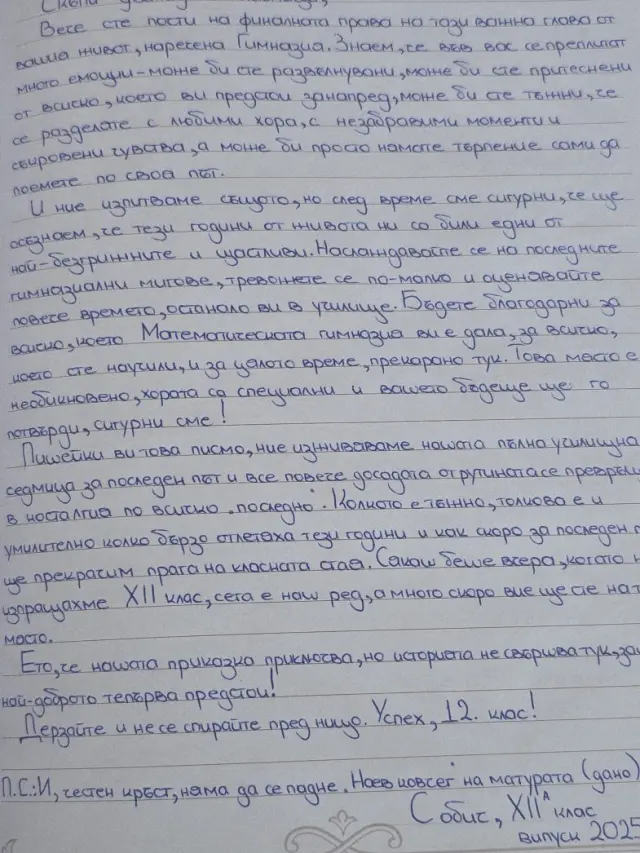 Вече сте почти на финалната права на тази важна глава от
вашия живот, наречена Гимназия. Знаем, че във вас се преплитат
много емоции - може би сте развълнувани, може би сте притеснени
от всичко, което ви предстои занапред, може би сте тъжни, че
се разделяте с любими хора, с незабравими моменти и
съкровени чувства, а може би просто нямате търпение сами да
поемете по своя път.
И ние изпитваме същото, но след време сме сигурни, че ще
осъзнаем, че тези години от живота ни са били едни от
най-безгрижните и щастливи. Наслаждавайте се на последните
гимназиални мигове, тревожете се по-малко и оценявайте
повече времето, останало ви в училище. Бъдете благодарни за
всичко, което Математическата гимназия ви е дала, за всичко,
което сте научили, и за цялото време, прекарано тук. Това място е
необикновено, хората са специални и вашето бъдеще ще го
потвърди, сигурни сме!
Пишейки ви това писмо, ние изживяваме нашата пълна училищна
седмица за последен път и все повече досадата от рутината се превръща
в носталгия по всичко „последно". Колкото е тъжно, толкова е и
умилително колко бързо отлетяха тези години и как скоро за последен
ще прекрачим прага на класната стая. Сякаш беше вчера, когато
изпращахме XII клас, сега е наш ред, а много скоро вие ще сте на
място.
Ето, че нашата приказка приключва, но историята не свършва тук,
най-доброто тепърва предстои!
Дерзайте и не се спирайте пред нищо. Успех, 12. клас!
П.С.: И, честен кръст, няма да се падне „На Балкански полуостров